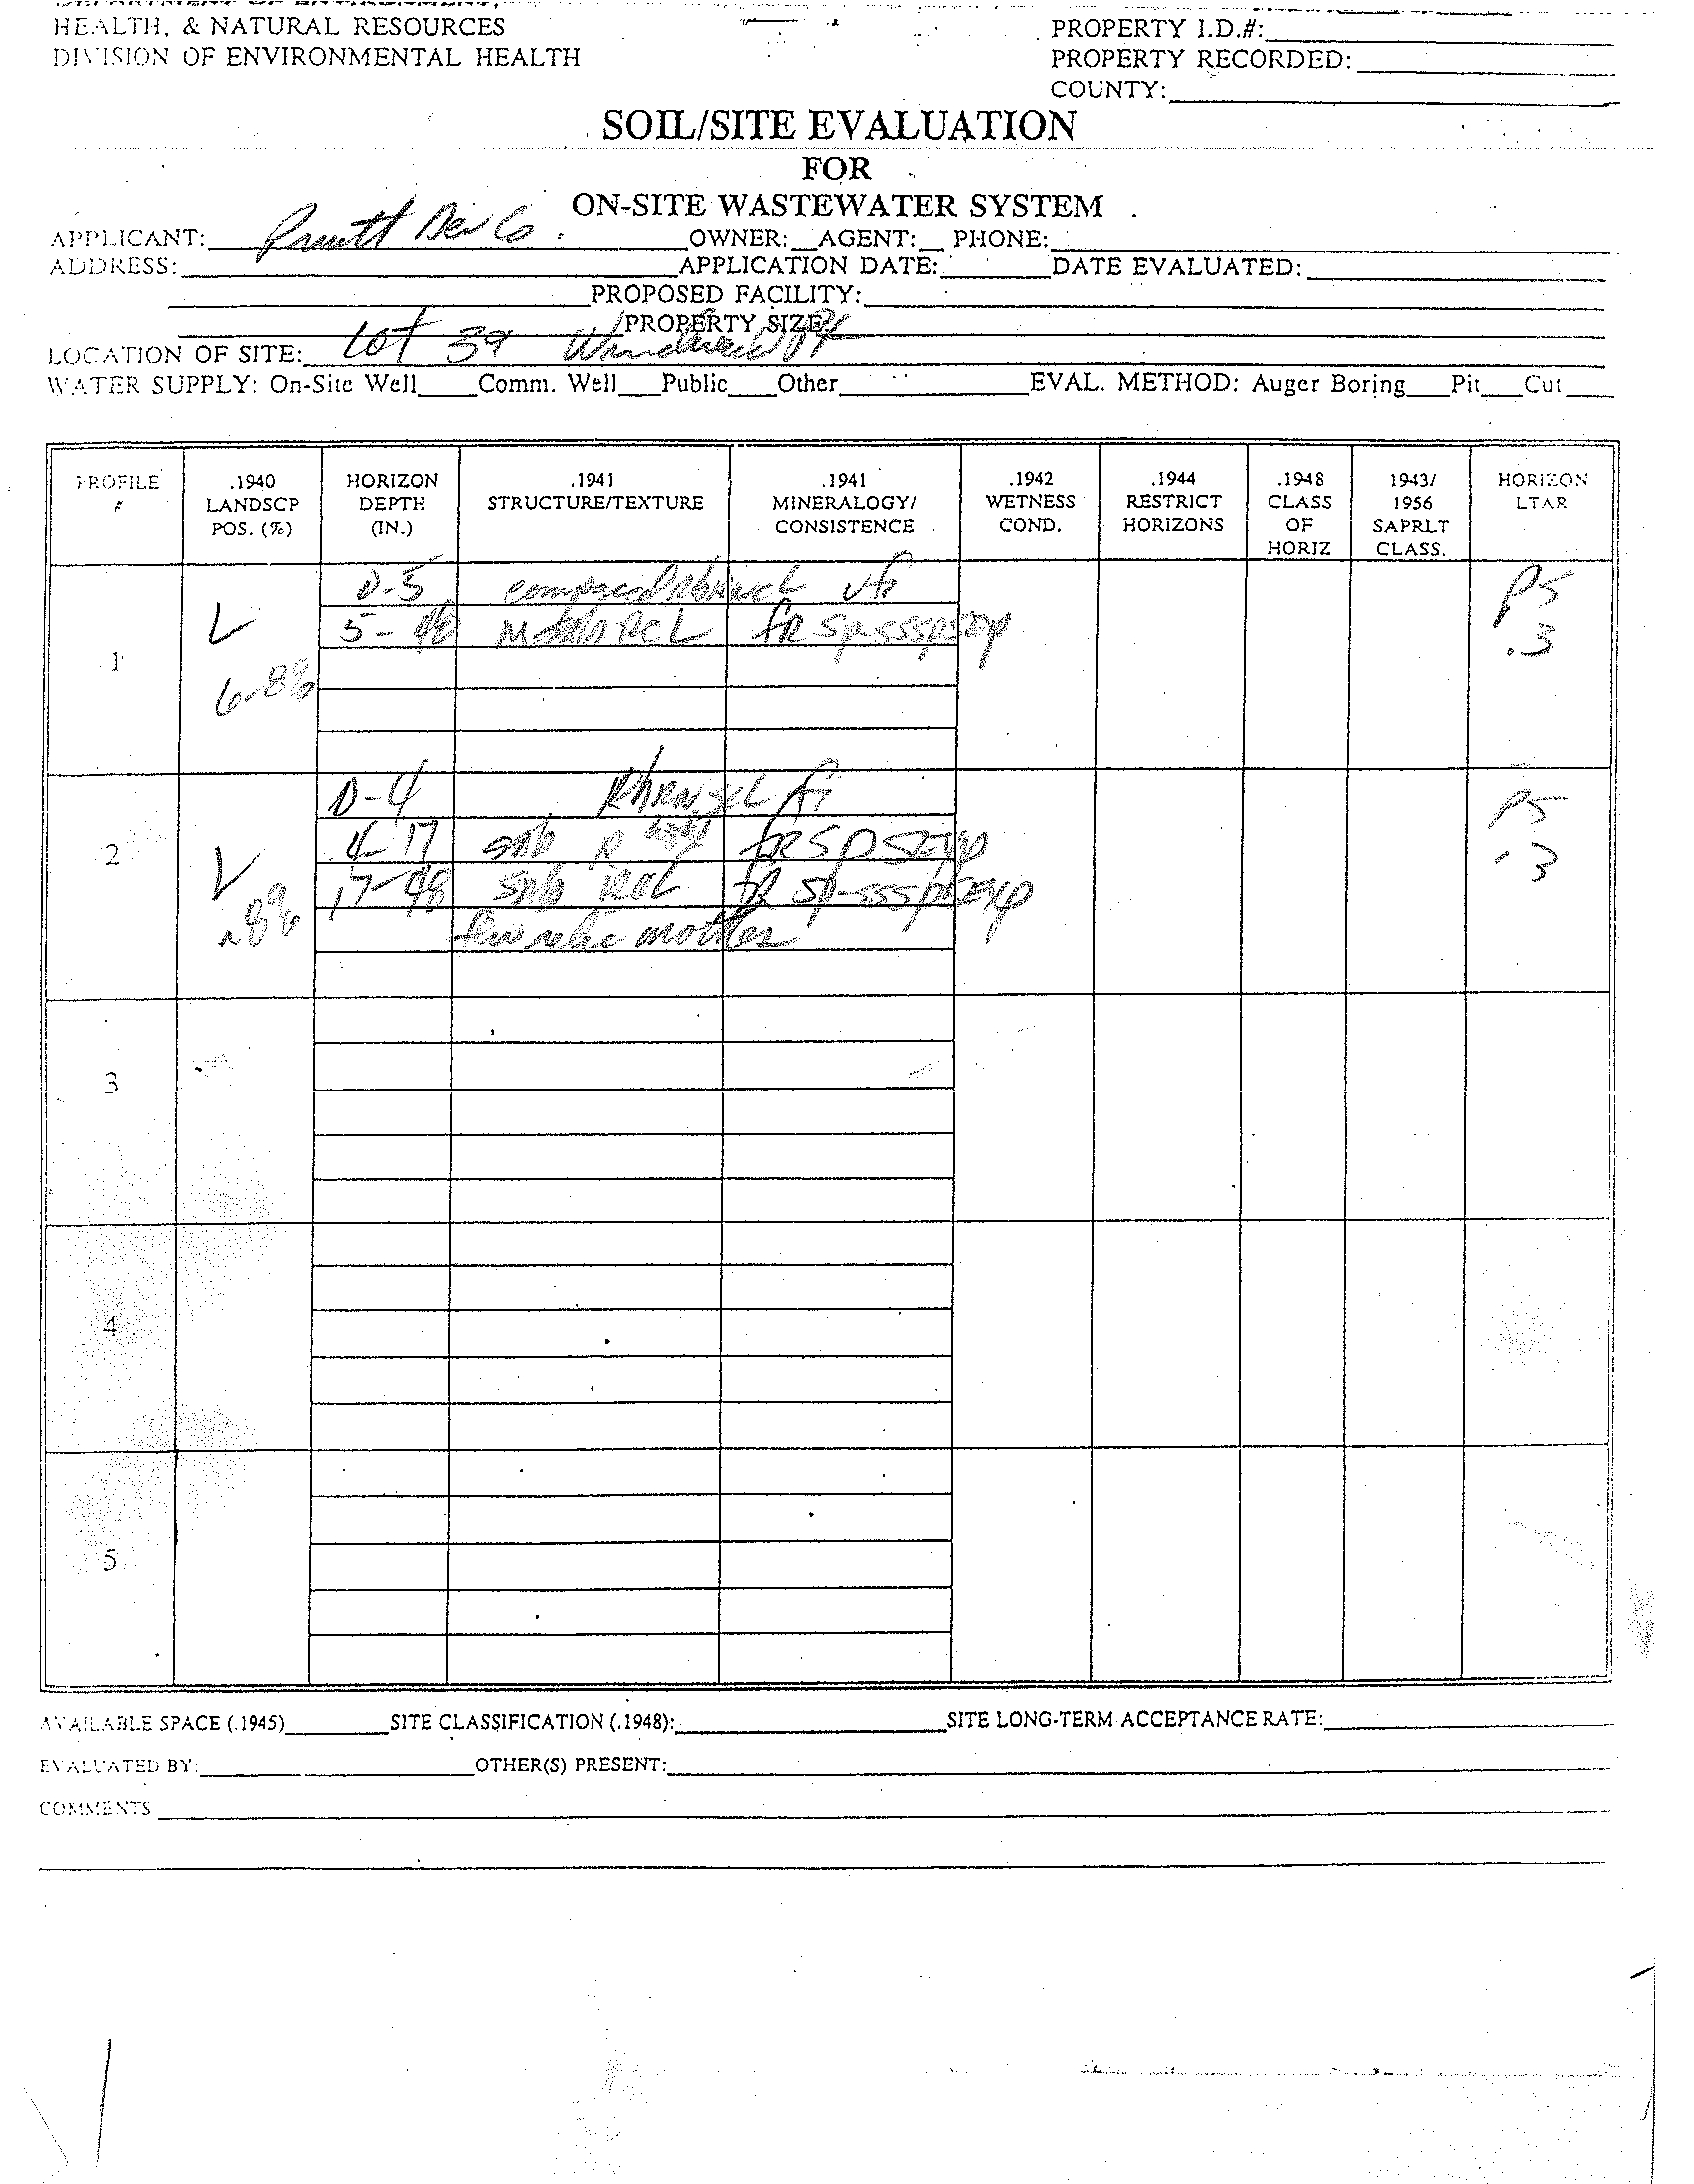 HEALTH, & NATURAL RESOURCES
DIVISION OF ENVIRONMENTAL HEALTH
PROPERTY I.D.#:
PROPERTY RECORDED:
COUNTY:
SOIL/SITE EVALUATION
FOR
ON-SITE WASTEWATER SYSTEM
APPLICANT: Dev Co. OWNER: AGENT: PHONE:
ADDRESS: APPLICATION DATE: DATE EVALUATED:
PROPOSED FACILITY:
PROPERTY SIZE:
LOCATION OF SITE: Lot 39
WATER SUPPLY: On-Site Well Comm. Well Public Other EVAL. METHOD: Auger Boring Pit Cut
PROFILE # .1940 LANDSCP POS. (%) HORIZON DEPTH (IN.) .1941 STRUCTURE/TEXTURE .1941 MINERALOGY/ CONSISTENCE .1942 WETNESS COND. .1944 RESTRICT HORIZONS .1948 CLASS OF HORIZ 1943/ 1956 SAPRLT CLASS. HORIZON LTAR
0-5 vfr PS
1 L 5-48 .3
6-8%
0-4 fr PS
2 L 4-17 sbk R .3
~8% 17-48 sbk RCL
few relic mottles
3
4
5
AVAILABLE SPACE (.1945) SITE CLASSIFICATION (.1948): SITE LONG-TERM ACCEPTANCE RATE:
EVALUATED BY: OTHER(S) PRESENT:
COMMENTS